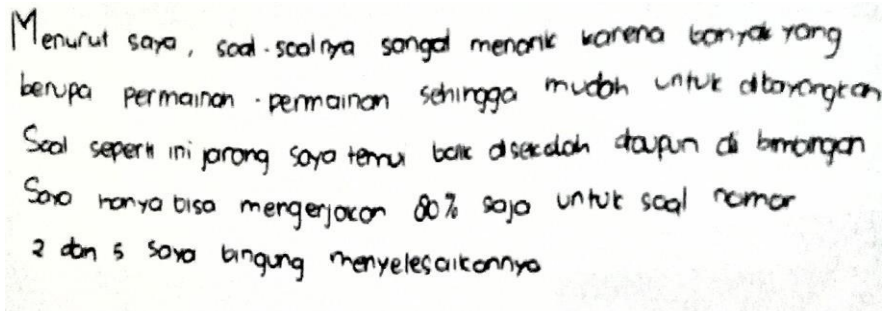 Menurut saya, soal-soalnya sangat menarik karena banyak yang
berupa permainan-permainan sehingga mudah untuk dibayangkan
Soal seperti ini jarang saya temui baik disekolah ataupun di bimbingan
Saya hanya bisa mengerjakan 80% saja untuk soal nomor
2 dan 5 saya bingung menyelesaikannya